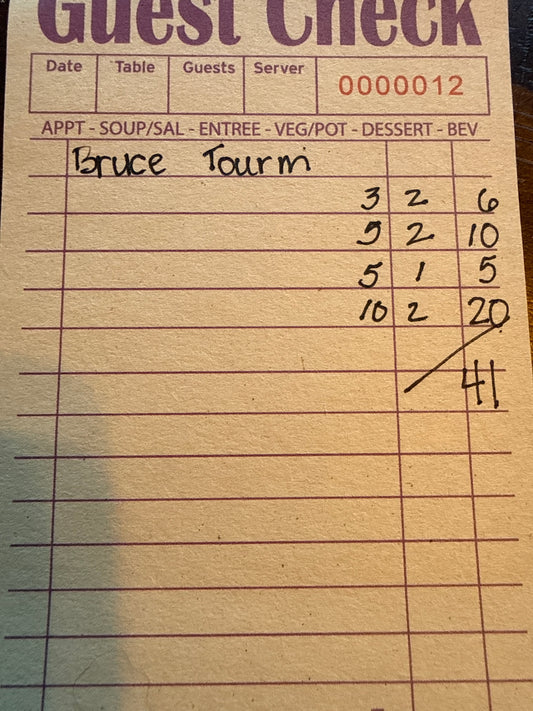 Guest Check
Date Table Guests Server 0000012
APPT - SOUP/SAL - ENTREE - VEG/POT - DESSERT - BEV
Bruce Tourm
3 2 6
5 2 10
5 1 5
10 2 20
41